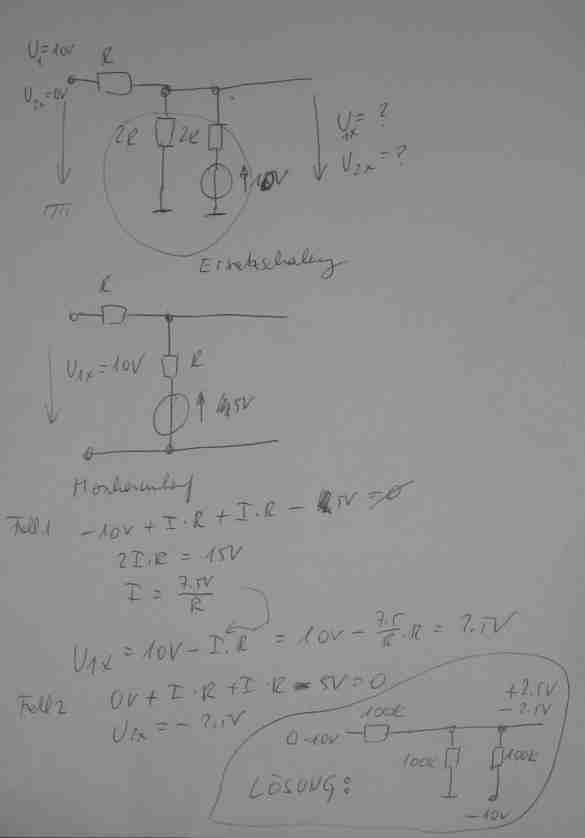 U₁=10V
R
U₂ₓ=0V
2R 2R
10V
U₁ₓ=?
U₂ₓ=?
Ersatzschaltung
R
U₁ₓ=10V
R
5V
Maschenumlauf
Fall 1 -10V + I·R + I·R - 5V = 0
2I·R = 15V
I = 7.5V/R
U₁ₓ = 10V - I·R = 10V - 7.5/R·R = 2.5V
Fall 2 0V + I·R + I·R - 5V = 0
U₂ₓ = -2.5V
+2.5V
-2.5V
100k
0-10V
100k
100k
LÖSUNG:
-10V